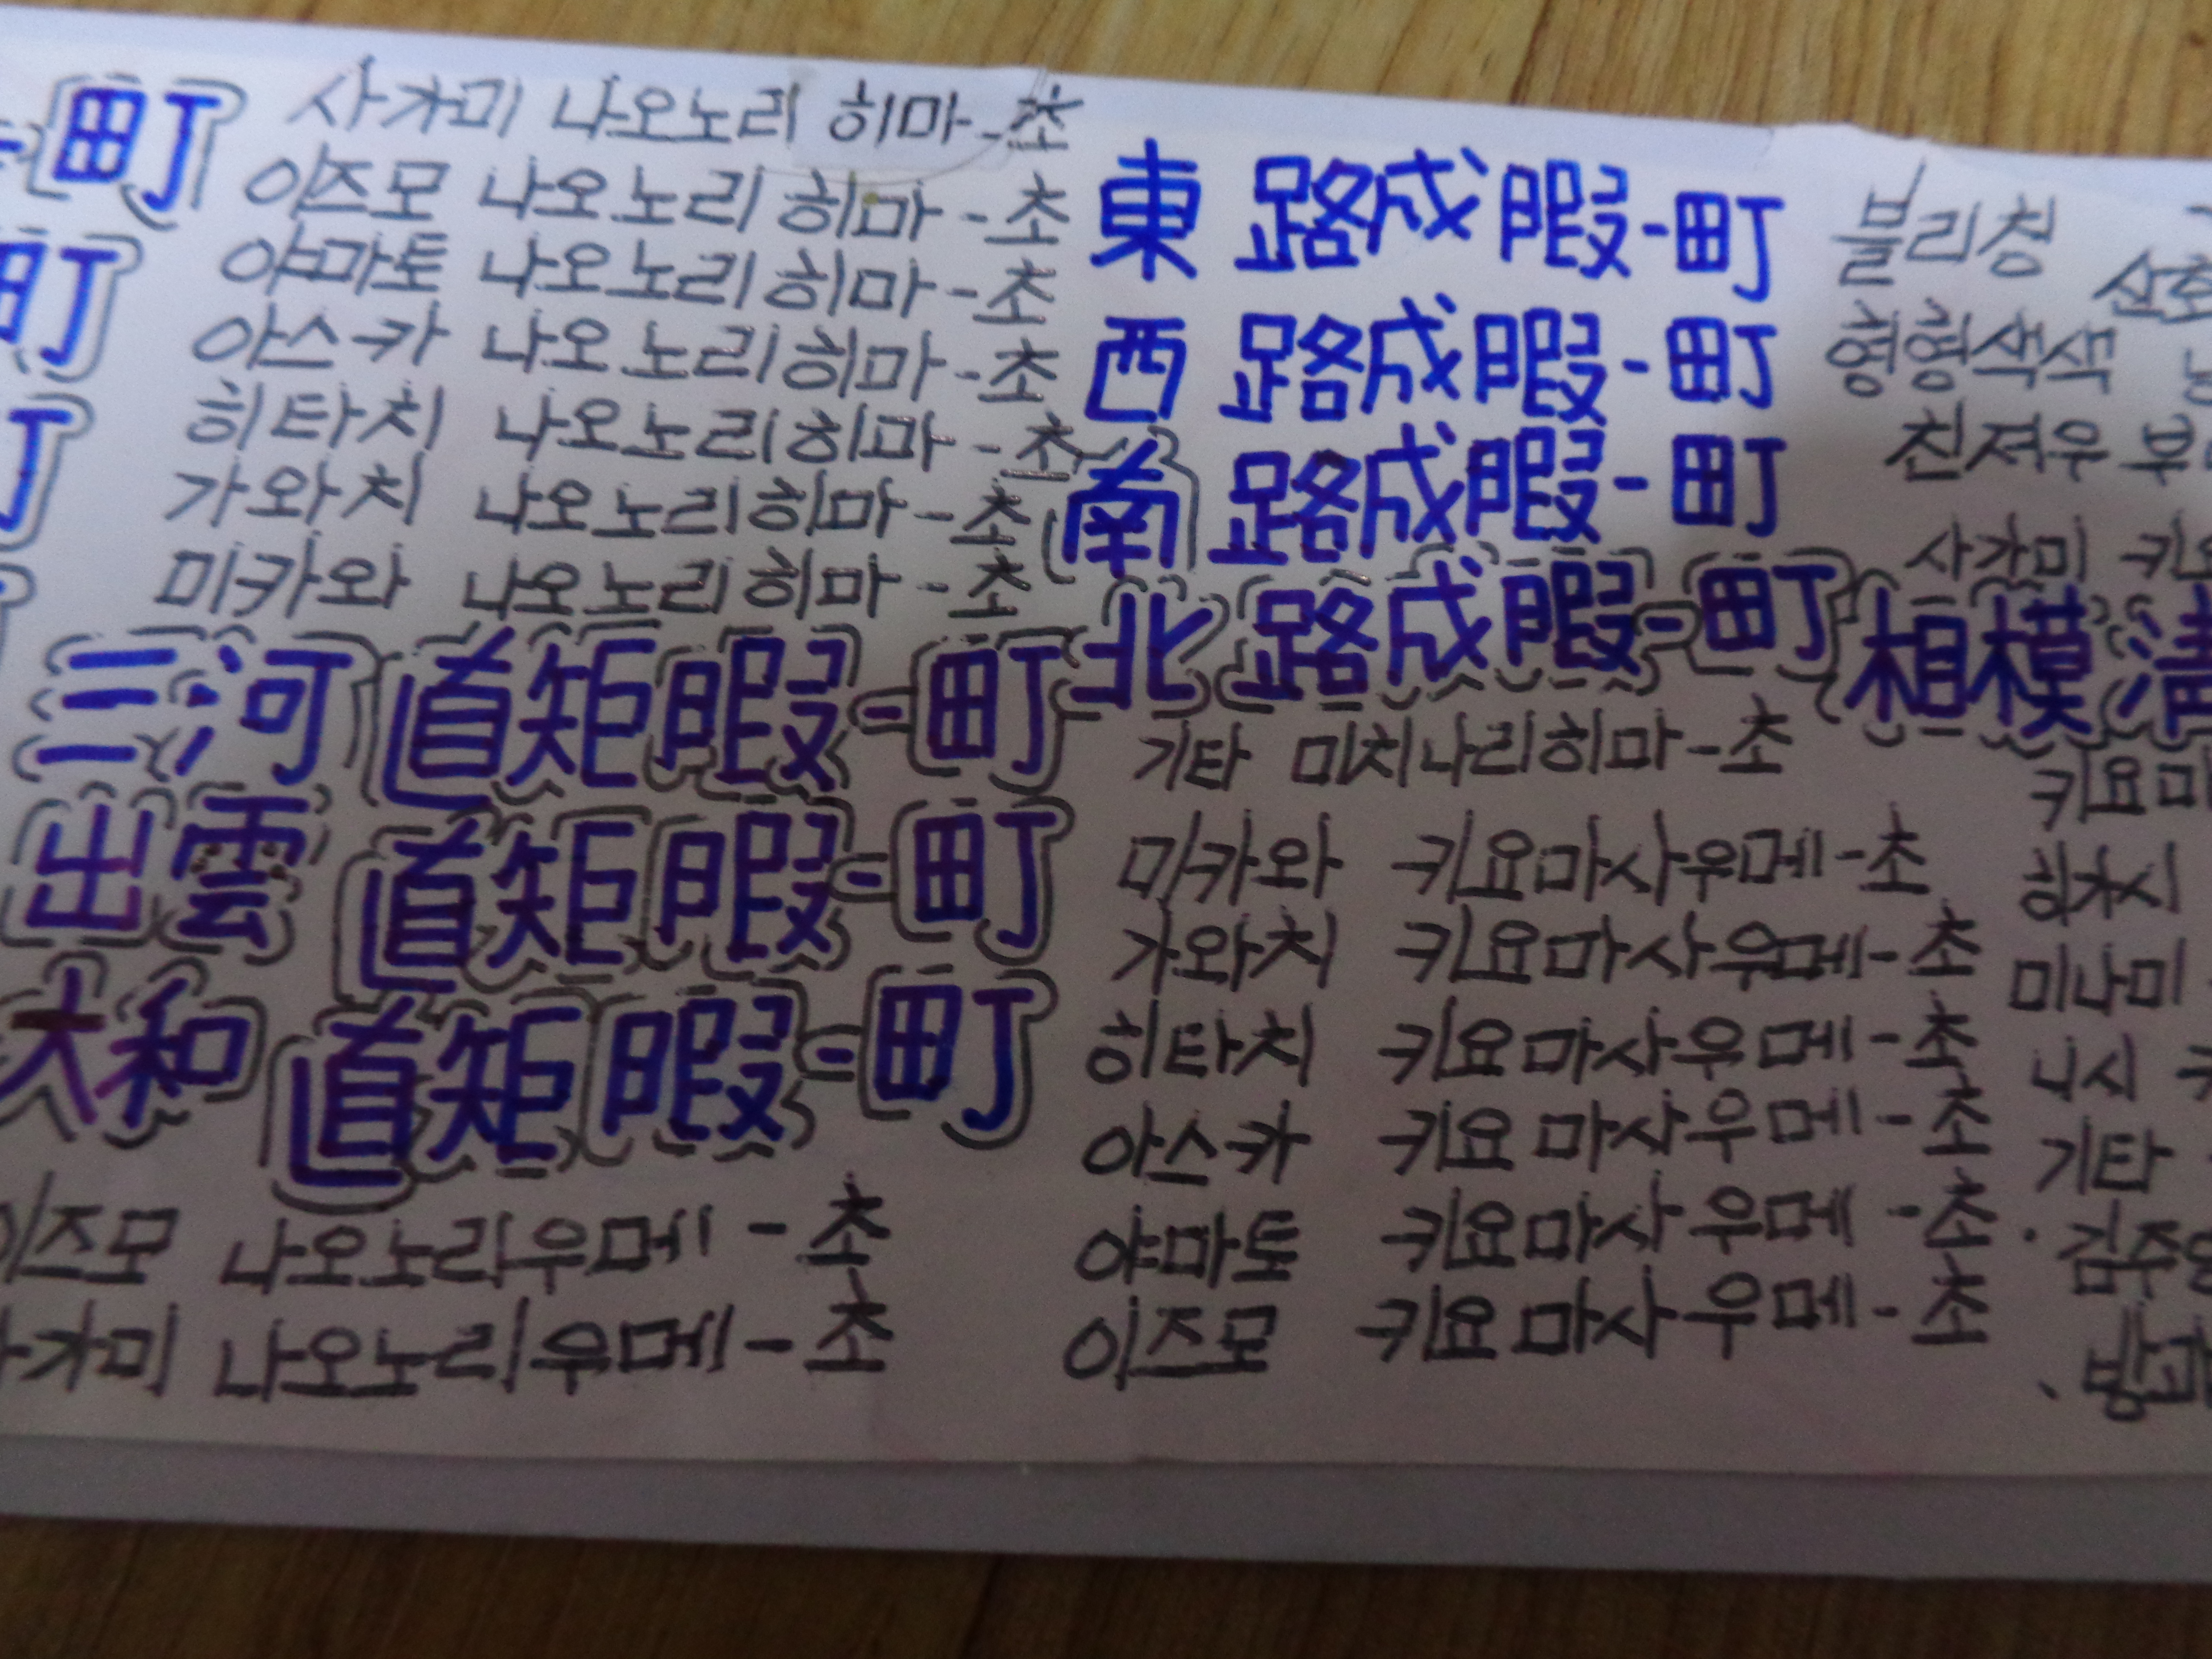 町
사가미 나오노리 히마-초
이즈모 나오노리히마-초
야마토 나오노리히마-초
아스카 나오노리히마-초
히타치 나오노리히마-초
가와치 나오노리히마-초
미카와 나오노리히마-초
三河 直矩暇-町
出雲 直矩暇-町
大和 直矩暇-町
이즈모 나오노리우메-초
가미 나오노리우메-초
東 路成暇-町
西 路成暇-町
南 路成暇-町
北 路成暇-町
기타 미치나리히마-초
미카와 키요마사우메-초
가와치 키요마사우메-초
히타치 키요마사우메-초
아스카 키요마사우메-초
야마토 키요마사우메-초
이즈모 키요마사우메-초
블리칭
형형색색
친져우
사가미 키요
相模 溝
키요마
미나미
니시
기타
김주